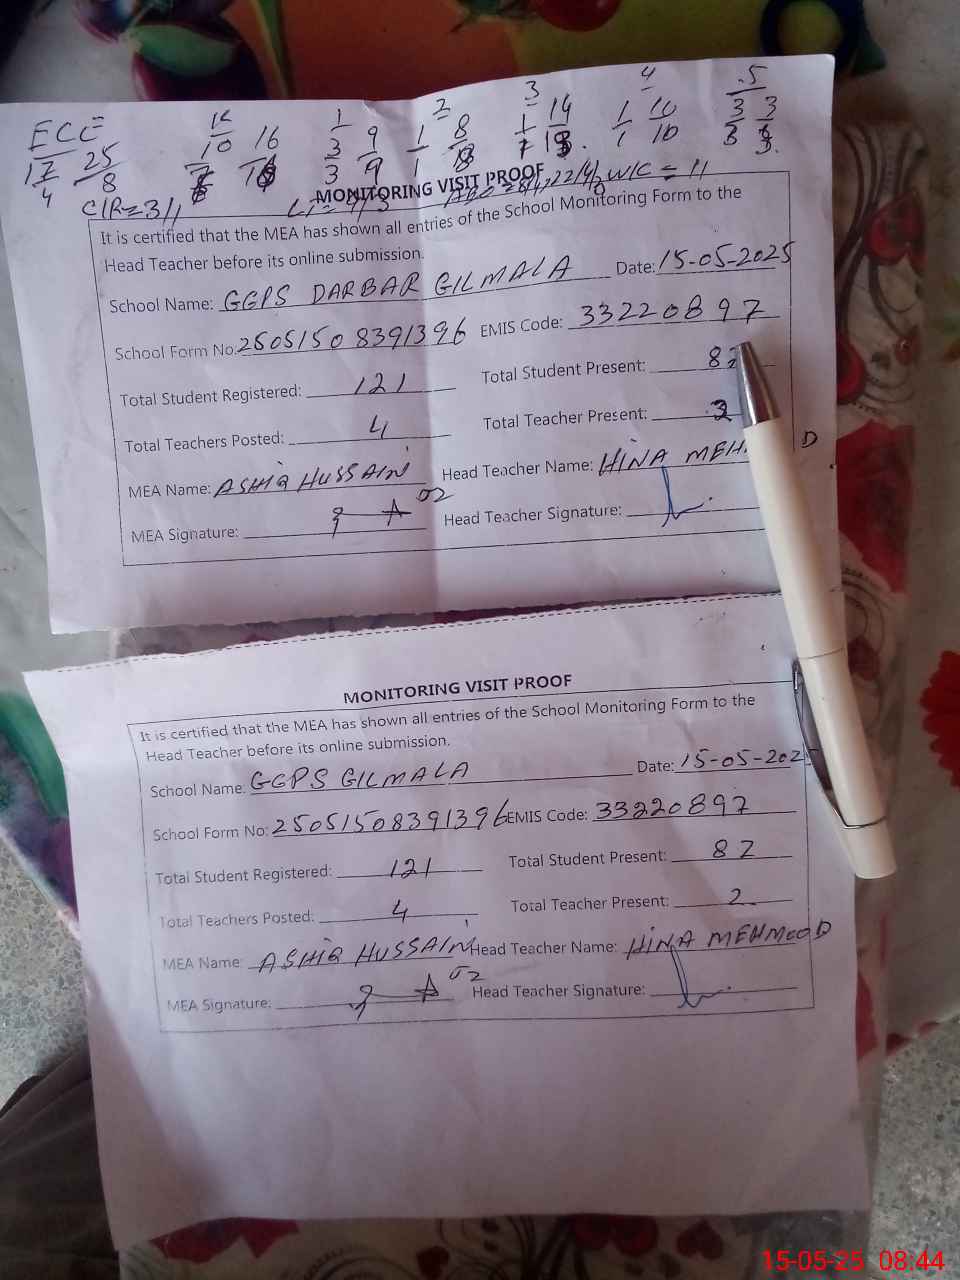 ECE K 1 2 3 4 .5
17 25 10 16 1 9 1 8 1 14 1 10 3 3
4 8 3 9 1 1 10 3 3.
C/R=3/1 W/C = 11
MONITORING VISIT PROOF
It is certified that the MEA has shown all entries of the School Monitoring Form to the
Head Teacher before its online submission.
School Name: GGPS DARBAR GILMALA Date: 15-05-2025
School Form No: 25051508391396 EMIS Code: 33220897
Total Student Registered: 121 Total Student Present: 82
Total Teachers Posted: 4 Total Teacher Present:
MEA Name: ASHIQ HUSSAIN Head Teacher Name: HINA MEH D
MEA Signature: 02 Head Teacher Signature:
MONITORING VISIT PROOF
It is certified that the MEA has shown all entries of the School Monitoring Form to the
Head Teacher before its online submission.
School Name: GGPS GILMALA Date: 15-05-2025
School Form No: 25051508391396 EMIS Code: 33220897
Total Student Registered: 121 Total Student Present: 82
Total Teachers Posted: 4 Total Teacher Present: 2
MEA Name: ASHIQ HUSSAIN Head Teacher Name: HINA MEHMOOD
MEA Signature: 02 Head Teacher Signature:
15-05-25 08:44